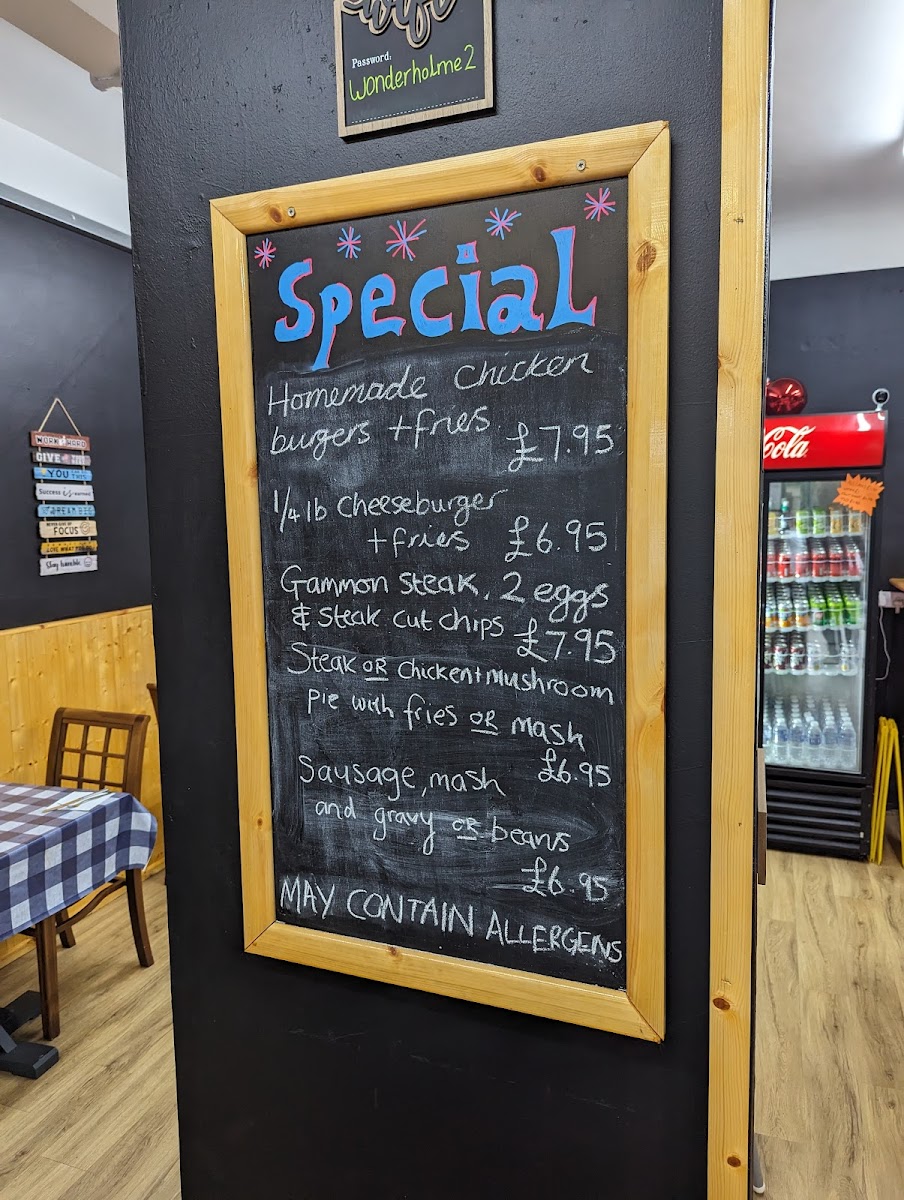 wifi
Password:
wonderholme2
Special
Homemade chicken
burgers + fries
£7.95
1/4 lb Cheeseburger
+ fries £6.95
Gammon steak, 2 eggs
& steak cut chips £7.95
Steak OR chicken + mushroom
pie with fries OR mash
£6.95
Sausage, mash
and gravy OR beans
£6.95
MAY CONTAIN ALLERGENS
WORK HARD
GIVE
YOU
Success is earned
DREAM BIG
FOCUS
LOVE WHAT YOU DO
Stay humble
Cola